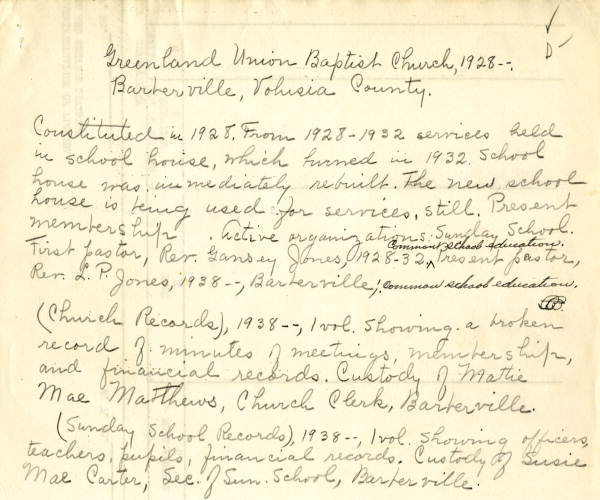 D-
Greenland Union Baptist Church, 1928--.
Barberville, Volusia County.
Constituted in 1928. From 1928-1932 services held
in school house, which burned in 1932. School
house was immediately rebuilt. The new school
house is being used for services, still. Present
membership . Active organizations: Sunday School.
common school education.
First pastor, Rev. Gansey Jones, 1928-32, Present pastor,
Rev. L. P. Jones, 1938--, Barberville; common school education.
(Church Records), 1938--, 1 vol. Showing a broken
record of minutes of meetings, membership,
and financial records. Custody of Mattie
Mae Matthews, Church Clerk, Barberville.
(Sunday School Records), 1938--, 1 vol. Showing officers,
teachers, pupils, financial records. Custody of Susie
Mae Carter, Sec. of Sun. School, Barberville.